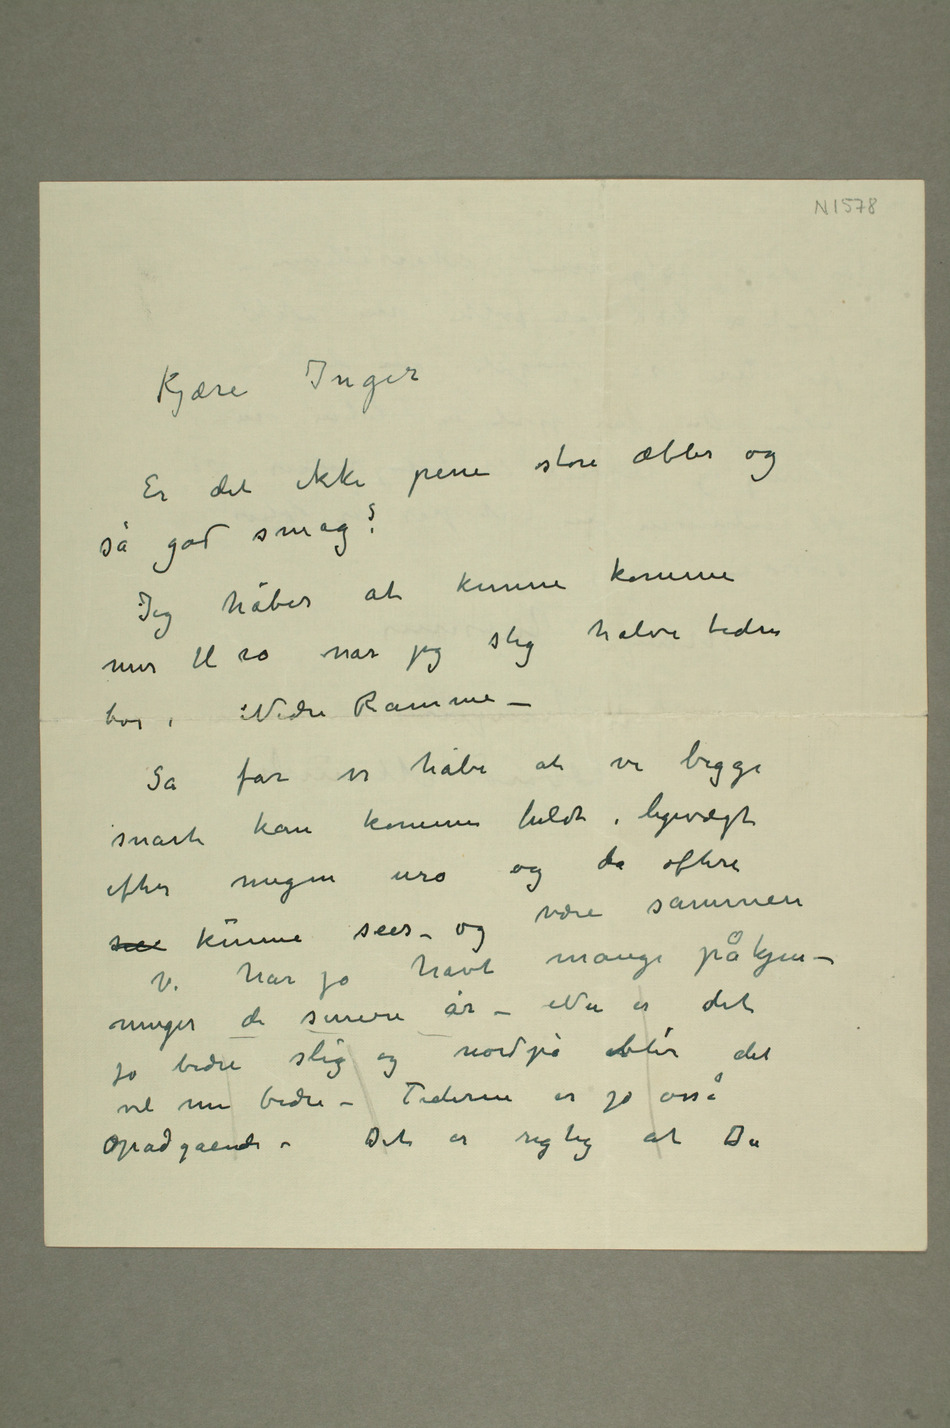 N 1578
Kjære Inger
Er det ikke pene store æbler og
så god smag?
Jeg håber at kunne komme
mer til ro når jeg slig halve tiden
bor i Nedre Ramme –
Så får vi håbe at vi begge
snart kan komme fuldt i ligevægt
efter megen uro og da oftere
see kunne sees – og være sammen
Vi har jo havt mange påkjen-
ninger de senere år – Nu er det
jo bedre slig og nordpå blir det
vel nu bedre – Tiderne er jo osså
opadgående – Det er rigtig at Du